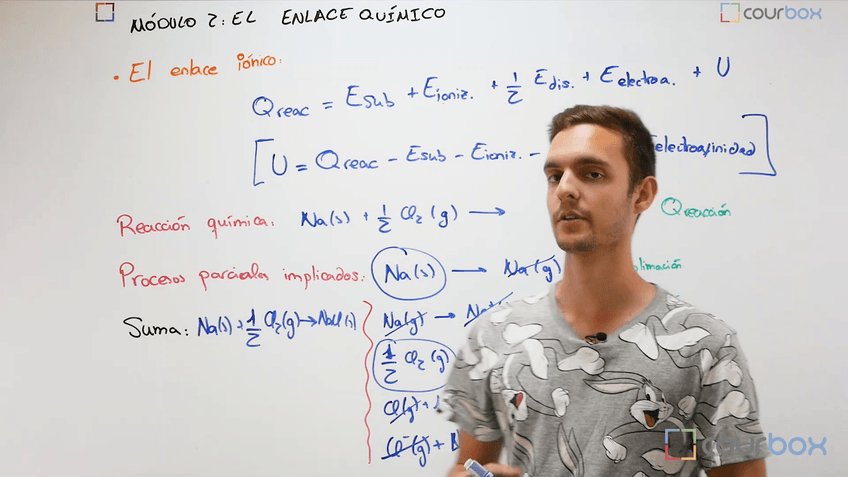 courbox
MÓDULO 2: EL ENLACE QUÍMICO
• El enlace iónico:
Qreac = Esub + Eioniz. + 1/2 Edis. + Eelectroa. + U
[U = Qreac - Esub - Eioniz. - Eelectroafinidad]
Reacción química: Na(s) + 1/2 Cl2 (g) → Qreacción
Procesos parciala implicados: Na(s) → Na(g) limación
Suma: Na(s) + 1/2 Cl2(g) → NaCl(s)
Na(g) →
1/2 Cl2 (g)
Cl(g) +
Cl-(g) +
courbox